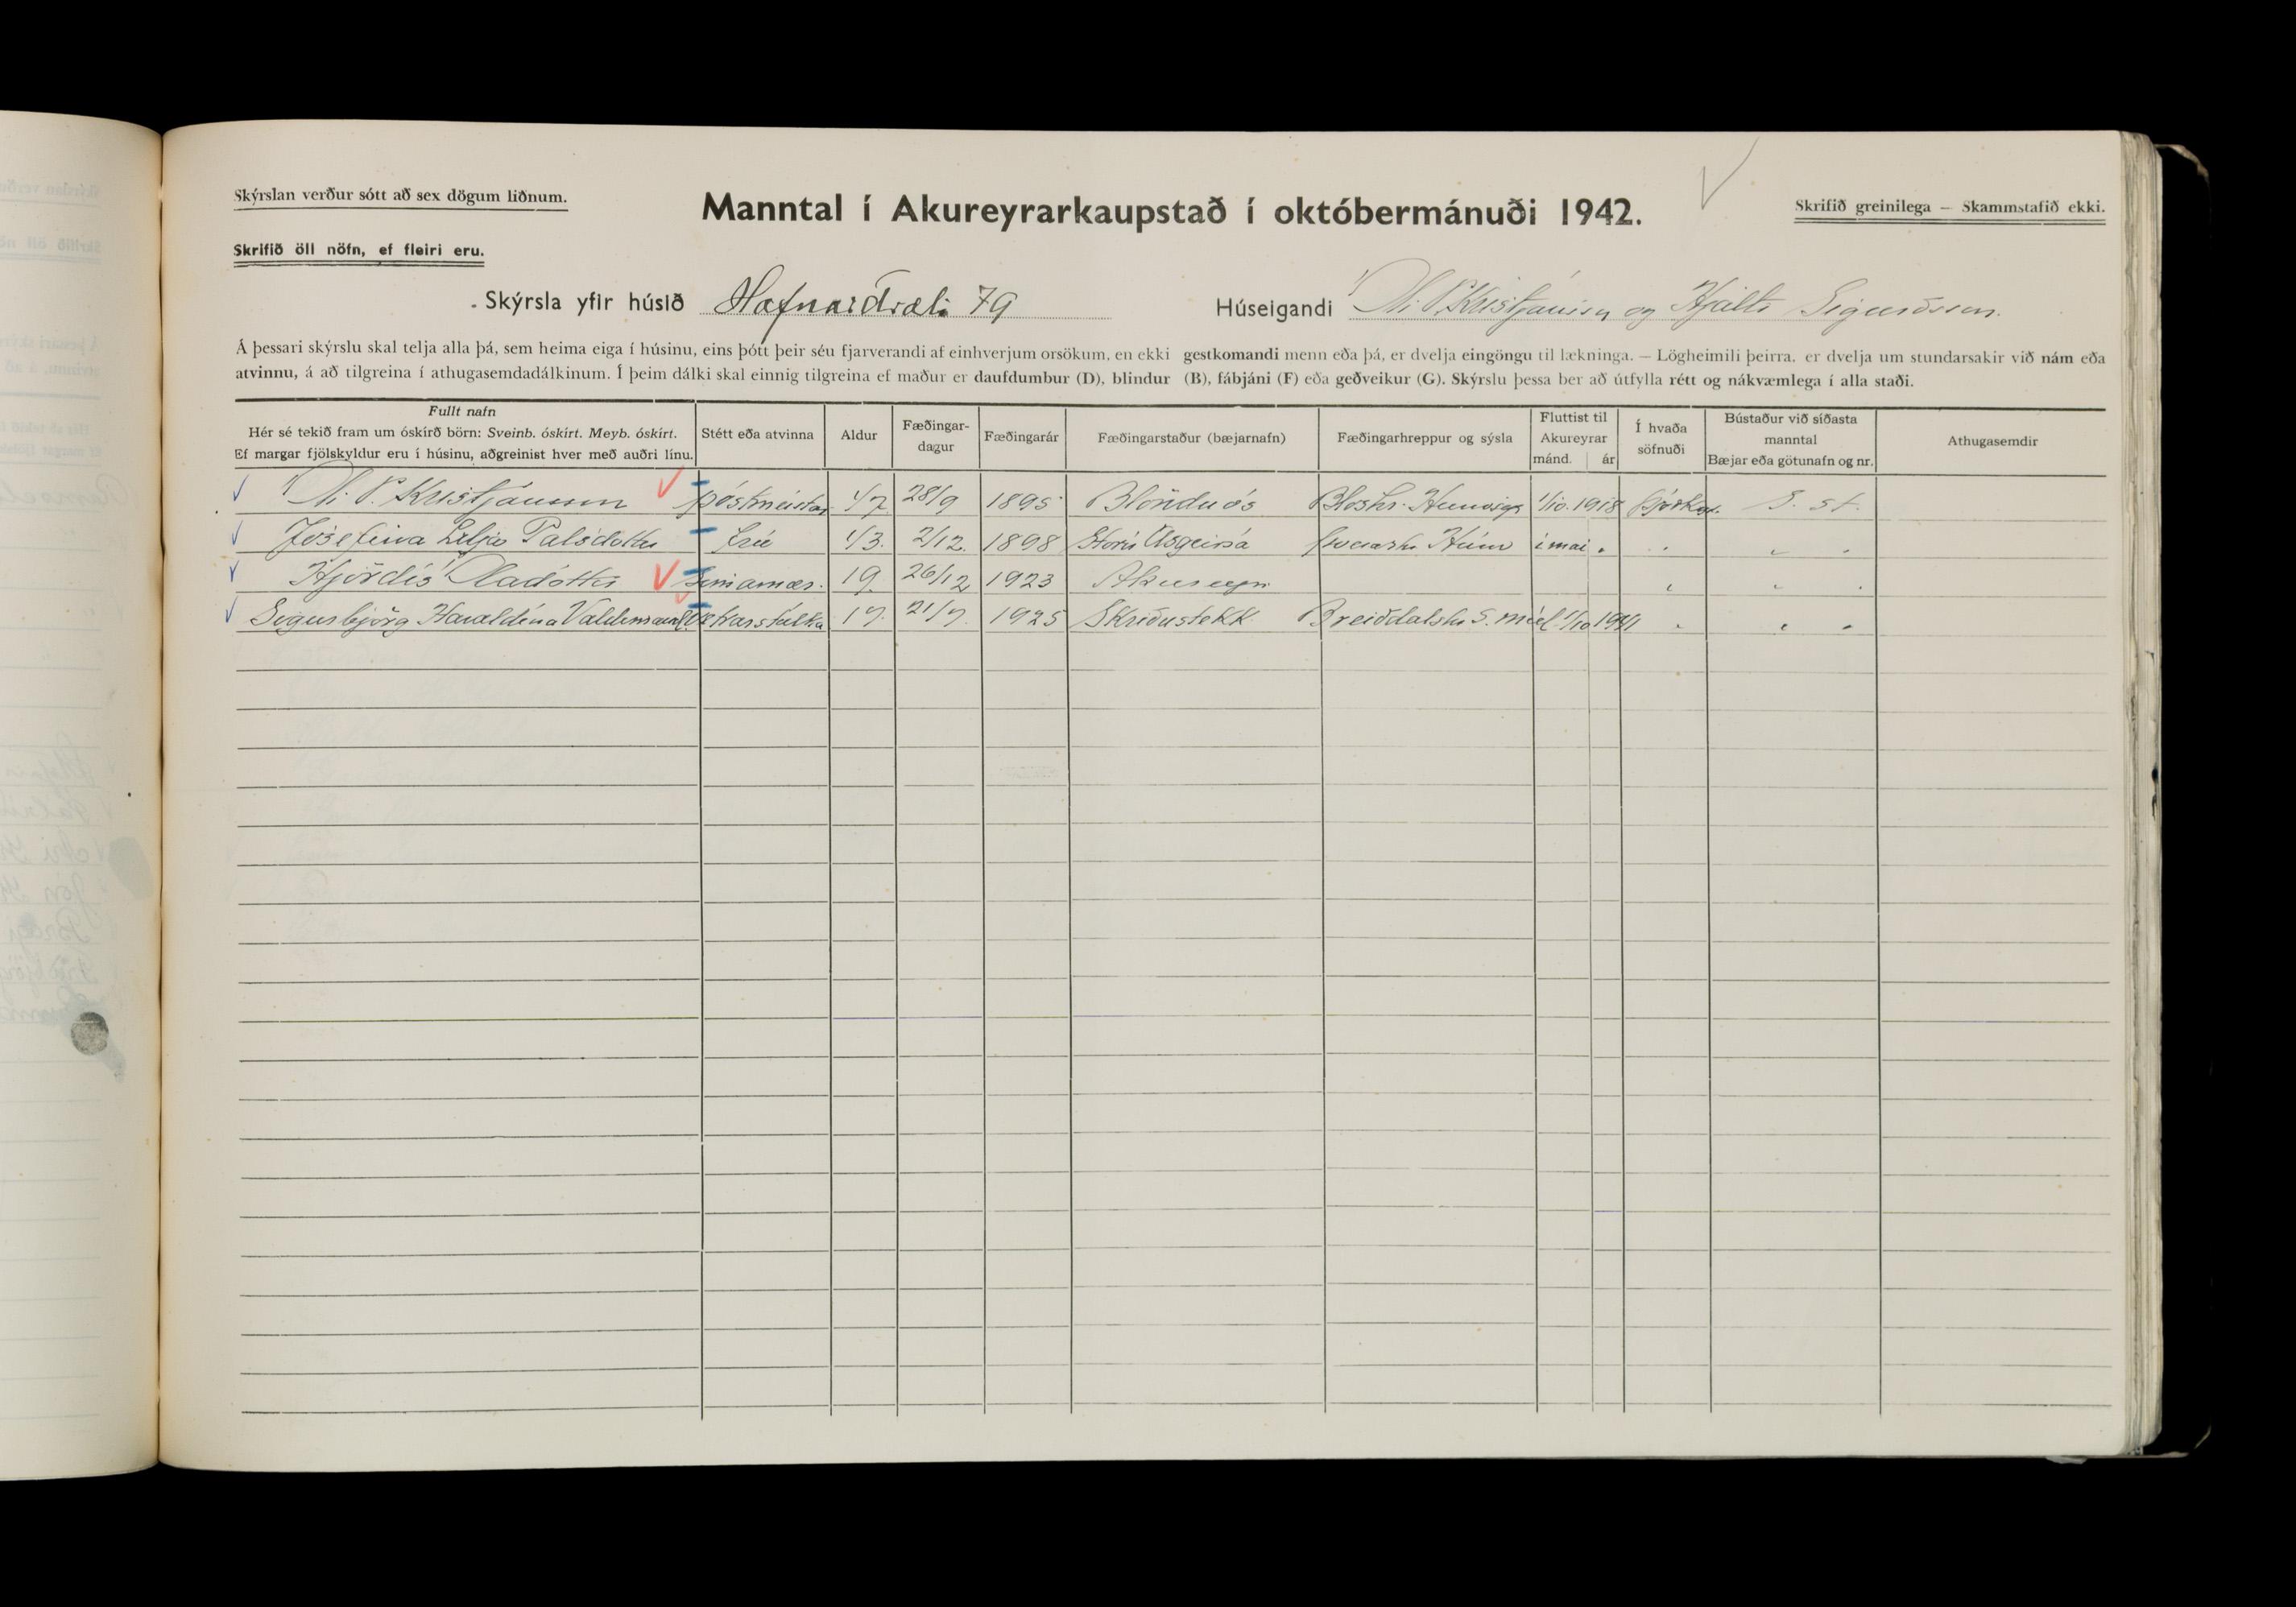 Skýrslan verður sótt að sex dögum liðnum.
Manntal í Akureyrarkaupstað í októbermánuði 1942.
Skrifið greinilega — Skammstafið ekki.
Skrifið öll nöfn, ef fleiri eru.
Skýrsla yfir húsið Hafnarstræti 79 Húseigandi Óli P. Kristjánsson og Hjalti Sigurðsson.
Á þessari skýrslu skal telja alla þá, sem heima eiga í húsinu, eins þótt þeir séu fjarverandi af einhverjum orsökum, en ekki gestkomandi menn eða þá, er dvelja eingöngu til lækninga. — Lögheimili þeirra, er dvelja um stundarsakir við nám eða
atvinnu, á að tilgreina í athugasemdadálkinum. Í þeim dálki skal einnig tilgreina ef maður er daufdumbur (D), blindur (B), fábjáni (F) eða geðveikur (G). Skýrslu þessa ber að útfylla rétt og nákvæmlega í alla staði.
Fullt nafn
Hér sé tekið fram um óskírð börn: Sveinb. óskírt. Meyb. óskírt.
Ef margar fjölskyldur eru í húsinu, aðgreinist hver með auðri línu.
Stétt eða atvinna
Aldur
Fæðingar-
dagur
Fæðingarár
Fæðingarstaður (bæjarnafn)
Fæðingarhreppur og sýsla
Fluttist til
Akureyrar
mánd. ár
Í hvaða
söfnuði
Bústaður við síðasta
manntal
Bæjar eða götunafn og nr.
Athugasemdir
Óli P. Kristjánsson póstmeistari 47 28/9 1895 Blönduós 1/10. 1918 Þjóðk. S. st.
Jósefina Lilja Pálsdóttir frú 43. 2/12. 1898 Stóru Ásgeirsá Hún í mai "
Hjördís Óladóttir 19. 26/12 1923 Akureyri " " "
Sigurbjörg Haraldína Valdemarsd. 17. 21/7. 1925 Skriðustekk Breiðdalshr S. Múl. 1/10 1941 " " "